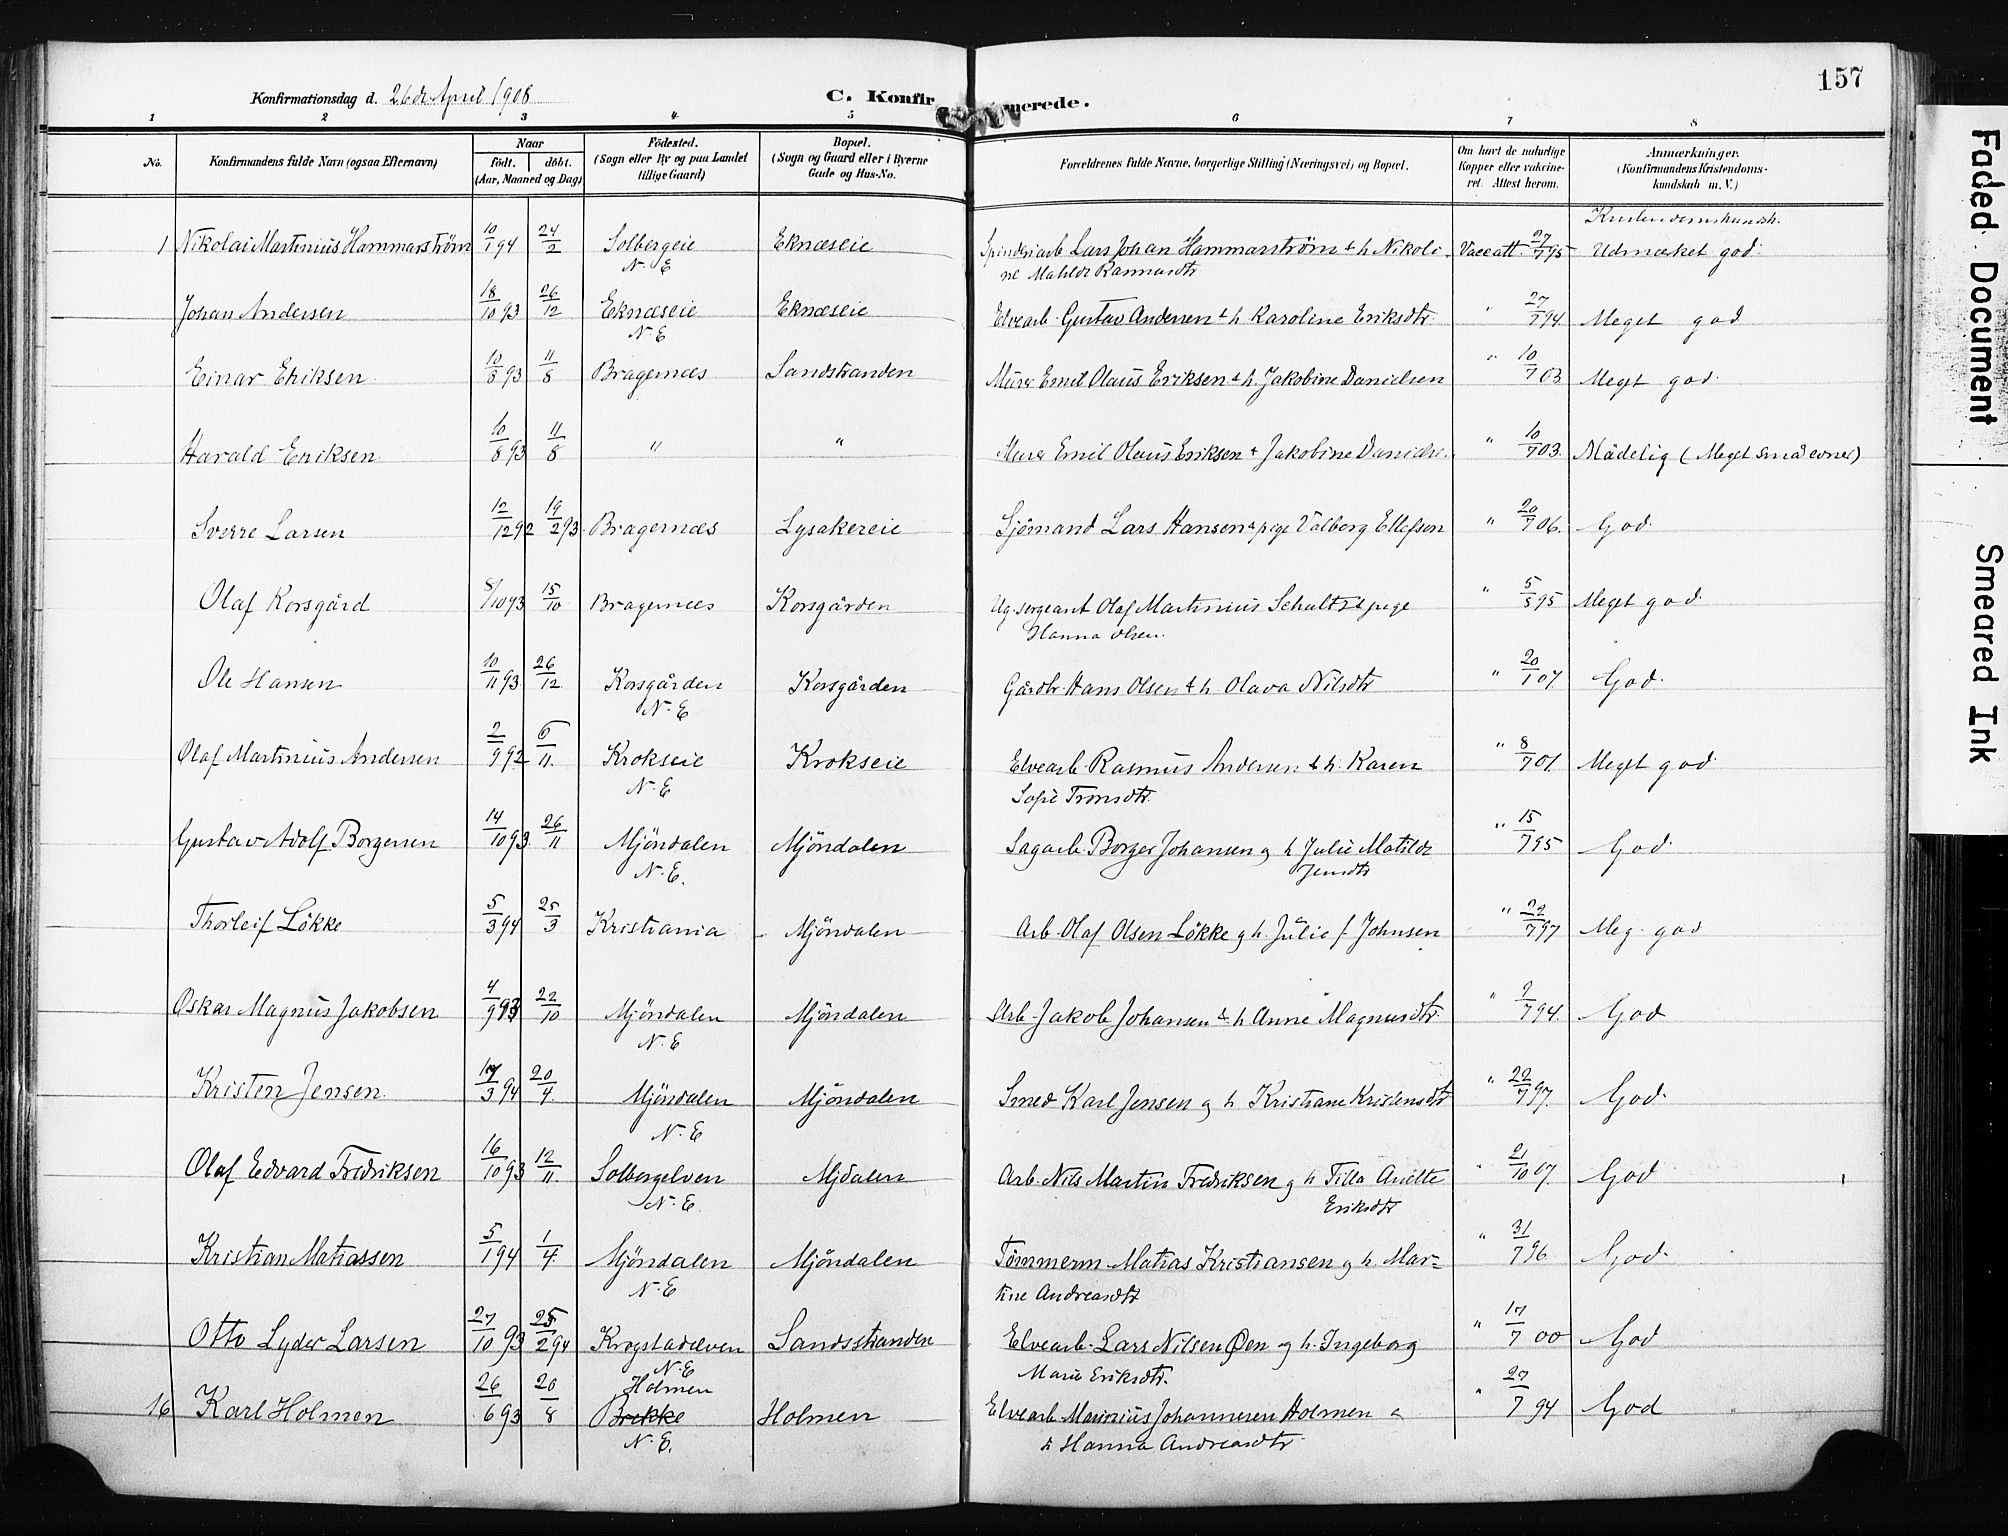 157
Konfirmationsdag d. 26de April 1908
C. Konfirmerede.
1 2 3 4 5 6 7 8
No.
Konfirmandens fulde Navn (ogsaa Efternavn)
Naar
født. døbt.
(Aar, Maaned og Dag)
Födested.
(Sogn eller By og paa Landet
tillige Gaard)
Bopæl.
(Sogn og Gaard eller i Byerne
Gade og Hus-No.
Forældrenes fulde Navne, borgerlige Stilling (Næringsvei) og Bopæl.
Om havt de naturlige
Kopper eller vakcine-
ret. Attest herom.
Anmærkninger.
(Konfirmandens Kristendoms-
kundskab m. V.)
Kristendomskundsk.
1 Nikolai Martinius Hammarstrøm 10/1 94 24/2 Solbergeie Eknæseie Spinderiarb Lars Johan Hammarstrøm & h Nikoli- Vaccatt. 27/7 95 Udmærket god.
N. E ne Matilde
Johan Andersen 18/10 93 26/12 Eknæseie Eknæseie Elvearb. Gustav Andersen & h Karoline Eriksdtr. " 27/7 94 Meget god
N. E
Einar Eriksen 10/8 93 11/8 Bragernæs Sandstranden Murer Emil Olaus Eriksen & h. Jakobine Danielsen " 10/7 03 Meget god.
Harald Eriksen 10/8 93 11/8 " " Murer Emil Olaus Eriksen & Jakobine Danielse. " 10/7 03. Mådelig (Meget små evner)
Sverre Larsen 12/12 92 19/2 93. Bragernæs Lysakereie Sjömand Lars Hansen & pige Valborg Ellefsen " 20/7 06. God.
Olaf Korsgård 8/10 93 15/10 Bragernæs Korsgården Ug. sergeant Olaf Martinius Schultz & pige " 5/5 95 Meget god.
Hanna Olsen.
Ole Hansen 10/11 93 26/12 Korsgården Korsgården Gårdbr. Hans Olsen & h Olava Nilsdtr " 20/1 07 God.
N. E
Olaf Martinius Andersen 2/9 92 6/11. Krokseie Krokseie Elvearb Rasmus Andersen & h. Karen " 8/7 01. Meget god.
N. E Sofie Tronsdtr.
Gustav Adolf Borgersen 14/10 93 26/11 Mjöndalen Mjöndalen Sagarb. Borger Johansen og h Julie Matilde " 15/7 95 God.
N. E. Jensdtr
Thorleif Løkke 5/3 94 25/3 Kristiania Mjöndalen Arb. Olaf Olsen Løkke og h. Julie f. Johnsen " 22/7 97 Meg. god
Oskar Magnus Jakobsen 4/9 93 22/10 Mjöndalen Mjöndalen Arb. Jakob Johansen & h Anne Magnusdtr. " 9/7 94. God
N. E
Kristen Jensen 17/3 94 20/4. Mjöndalen Mjöndalen Smed Karl Jensen og h Kristiane Kristensdtr " 22/7 97. God.
N. E
Olaf Edvard Fredriksen 16/10 93 12/11. Solbergelven Mjdalen Arb. Nils Martin Fredriksen og h Tilla " 21/10 07. God
N. E. Eriksdtr
Kristian Matiassen 5/1 94 1/4. Mjöndalen Mjöndalen Tømmerm. Matias Kristiansen og h. Mar- " 31/7 96. God.
N. E tine Andreasdtr
Otto Lyder Larsen 27/10 93 25/2 94 Krogstadelven Sandsstranden Elvearb. Lars Nilsen Øen og h. Ingeborg " 17/7 00 God
N. E Marie Eriksdtr.
Holmen
16 Karl Holmen 26/6 93 20/8 Brekke Holmen Elvearb Johannesen Holmen & " 27/7 94 God
N. E. h Hanna Andreasdtr.
Faded Document
Smeared Ink